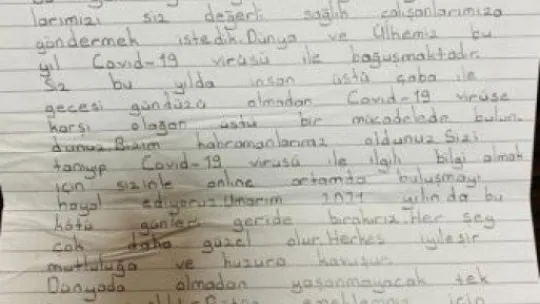 larımızı siz değerli sağlık çalışanlarımıza
göndermek istedik.Dünya ve Ülkemiz bu
yıl Covid-19 virüsü ile boğuşmaktadır.
Siz bu yılda insan üstü çaba ile
gecesi gündüzü olmadan Covid-19 virüse
karşı olağan üstü bir mücadelede bulun-
dunuz.Bizim kahramanlarımız oldunuz.Sizi
tanıyıp Covid-19 virusü ile ilgili bilgi almak
için sizinle online ortamda buluşmayı
hayal ediyoruz.Umarım 2021 yılında bu
kötü günleri geride bırakırız.Her şey
çok daha güzel olur.Herkes iyileşir
mutluluğa ve huzura kavuşur.
Dünyada olmadan yaşanmayacak tek
için